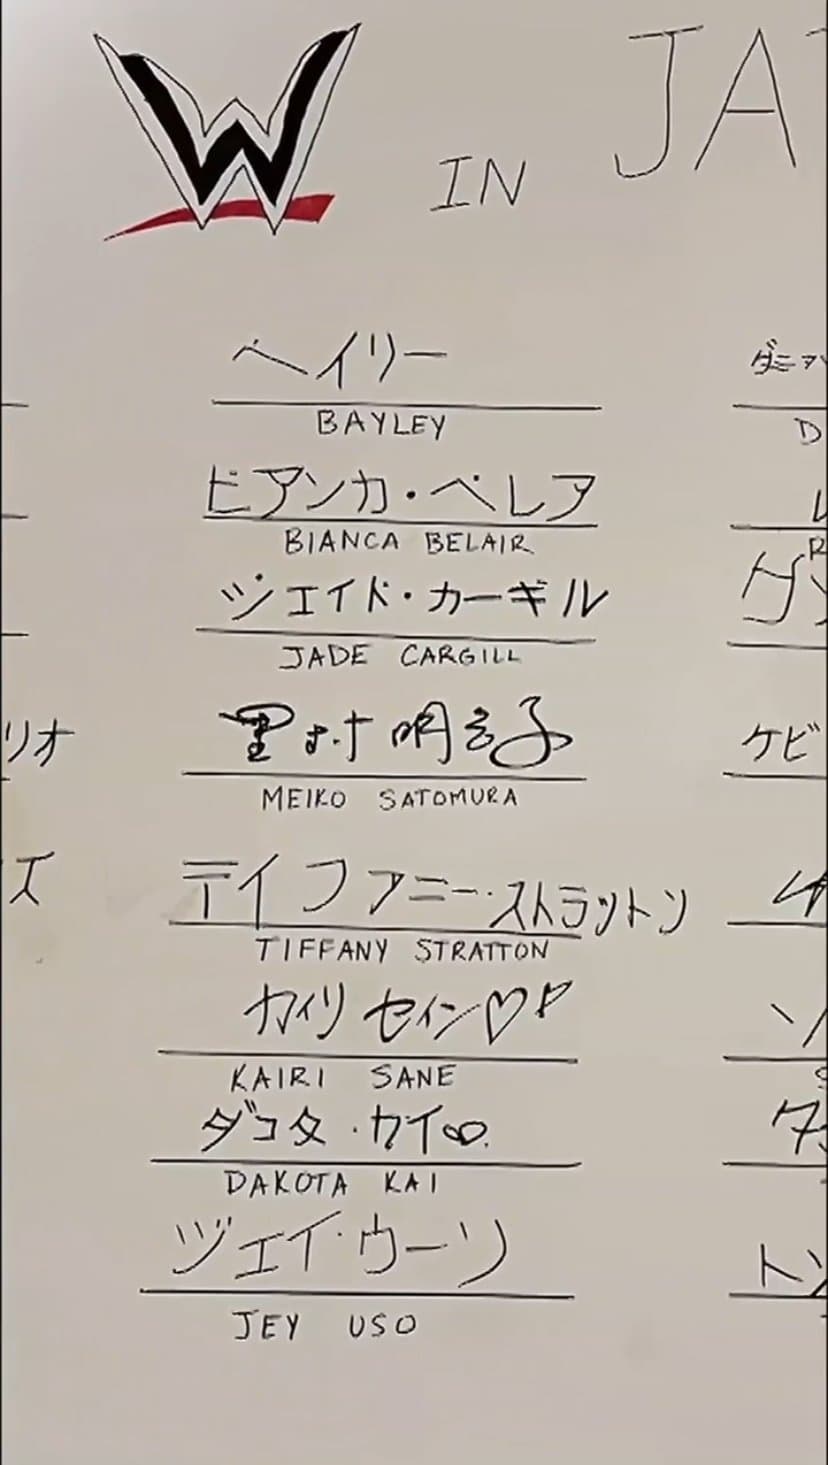 W IN JA
ヘイリー
BAYLEY
ビアンカ・ベレア
BIANCA BELAIR
ジェイド・カーギル
JADE CARGILL
里村明衣子
MEIKO SATOMURA
ティファニー・ストラットン
TIFFANY STRATTON
カイリ セイン♡
KAIRI SANE
ダコタ・カイ
DAKOTA KAI
ジェイ・ウーソ
JEY USO
リオ
ダニア
D
ケビ